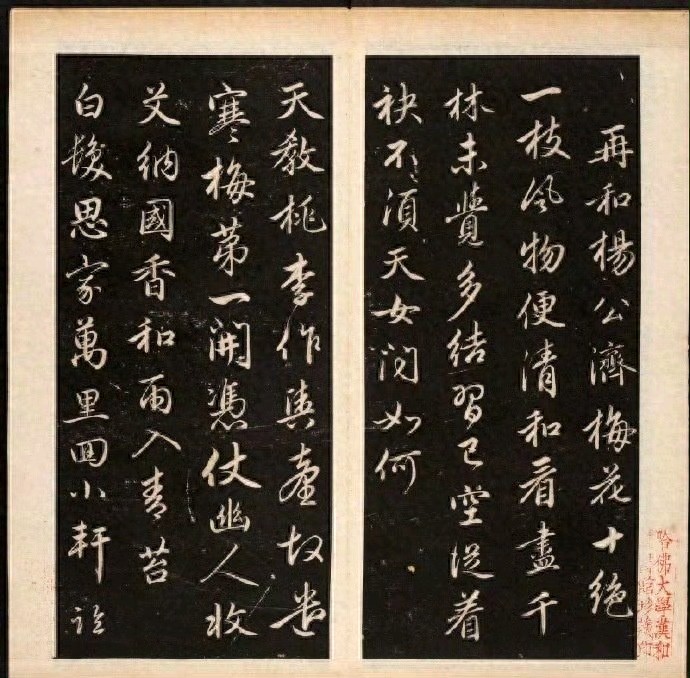 再和楊公濟梅花十絕
一枝風物便清和看盡千
林未覺多結習已空從着
袂不須天女問如何
天教桃李作輿臺故遣
寒梅第一開憑仗幽人收
艾納國香和雨入青苔
白髮思家萬里回小軒臨
哈佛大學漢和
圖書館珍藏印